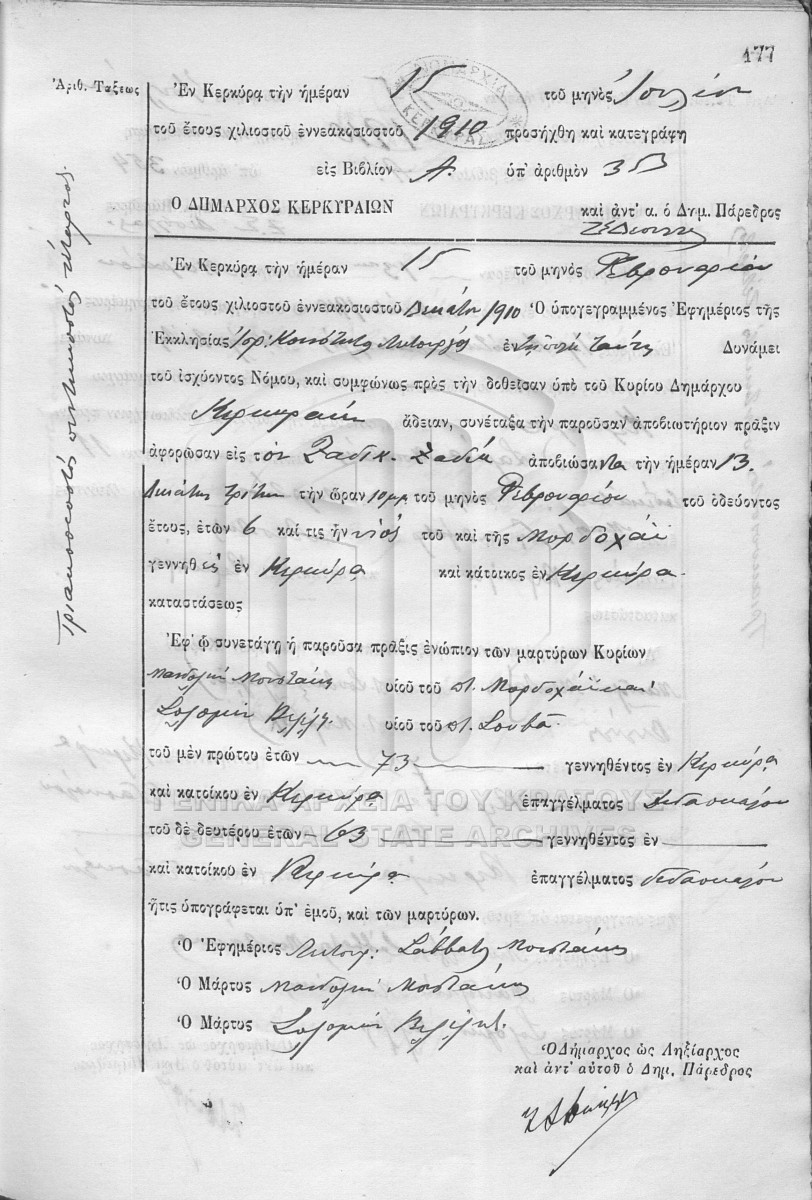 177
Ἀριθ. Τάξεως
Ἐν Κερκύρᾳ τὴν ἡμέραν 15 τοῦ μηνὸς Ἰουλίου
τοῦ ἔτους χιλιοστοῦ ἐννεακοσιοστοῦ 1910 προσήχθη καὶ κατεγράφη
εἰς Βιβλίον Α. ὑπ' ἀριθμὸν 353
Ο ΔΗΜΑΡΧΟΣ ΚΕΡΚΥΡΑΙΩΝ καὶ ἀντ' α. ὁ Δημ. Πάρεδρος
Τριακοσιοστὸς πεντηκοστὸς τρίτος.
Ἐν Κερκύρᾳ τὴν ἡμέραν 15 τοῦ μηνὸς Φεβρουαρίου
τοῦ ἔτους χιλιοστοῦ ἐννεακοσιοστοῦ Δεκάτου 1910 Ὁ ὑπογεγραμμένος Ἐφημέριος τῆς
Ἐκκλησίας Ἰσρ: Κοινότητος Λειτουργός ἐν τῇ πόλει ταύτῃ Δυνάμει
τοῦ ἰσχύοντος Νόμου, καὶ συμφώνως πρὸς τὴν δοθεῖσαν ὑπὸ τοῦ Κυρίου Δημάρχου
Κερκυραίων ἄδειαν, συνέταξα τὴν παροῦσαν ἀποβιωτήριον πρᾶξιν
ἀφορῶσαν εἰς τὸν Σαδικ. Σαδίκ ἀποβιώσαντα τὴν ἡμέραν 13.
Δεκάτην τρίτην τὴν ὥραν 10 μμ τοῦ μηνὸς Φεβρουαρίου τοῦ ὁδεύοντος
ἔτους, ἐτῶν 6 καί τις ἦν υἱὸς τοῦ καὶ τῆς Μορδοχάϊ
γεννηθεὶς ἐν Κερκύρᾳ καὶ κάτοικος ἐν Κερκύρᾳ.
καταστάσεως
Ἐφ' ᾧ συνετάγη ἡ παροῦσα πρᾶξις ἐνώπιον τῶν μαρτύρων Κυρίων
Μανδολῆ Μουστάκη υἱοῦ τοῦ π. Μορδοχάϊ καὶ
Σολομὼν Βελλέλη. υἱοῦ τοῦ π.
τοῦ μὲν πρώτου ἐτῶν 73 γεννηθέντος ἐν Κερκύρᾳ
καὶ κατοίκου ἐν Κερκύρᾳ ἐπαγγέλματος διδασκάλου
τοῦ δὲ δευτέρου ἐτῶν 63 γεννηθέντος ἐν
καὶ κατοίκου ἐν Κερκύρᾳ ἐπαγγέλματος διδασκάλου
ἥτις ὑπογράφεται ὑπ' ἐμοῦ, καὶ τῶν μαρτύρων.
Ὁ Ἐφημέριος Λειτουρ: Σάββατος Μουστάκης
Ὁ Μάρτυς Μανδολῆ Μουστάκης
Ὁ Μάρτυς Σολομὼν
Ὁ Δήμαρχος ὡς Ληξίαρχος
καὶ ἀντ' αὐτοῦ ὁ Δημ. Πάρεδρος
ΓΕΝΙΚΑ ΑΡΧΕΙΑ ΤΟΥ ΚΡΑΤΟΥΣ
GENERAL STATE ARCHIVES